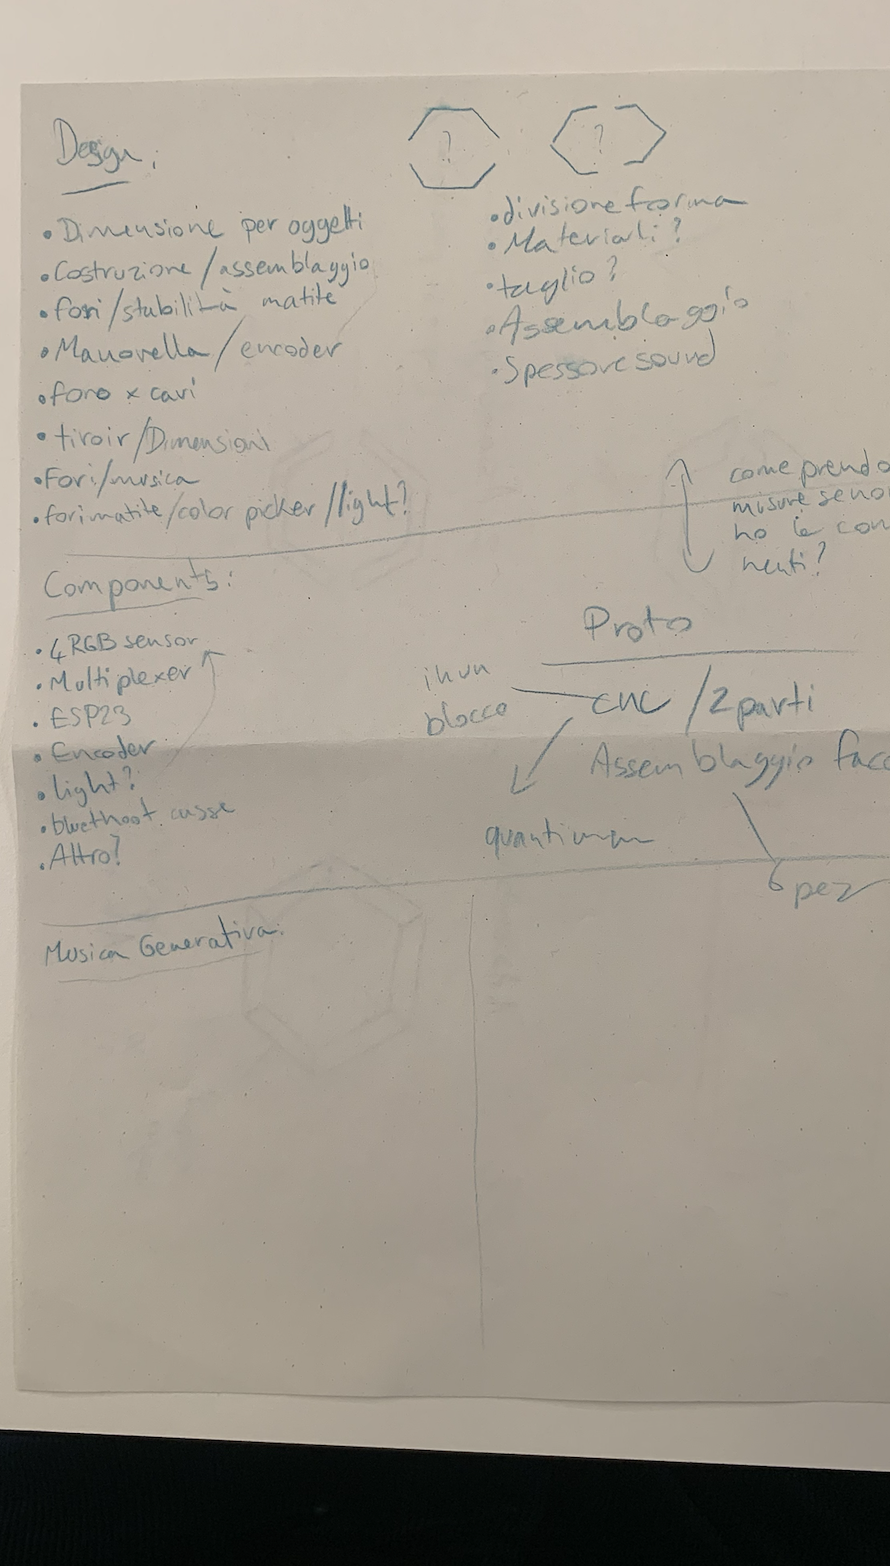 Design:
? ?
• Dimensione per oggetti
• Costruzione/assemblaggio
• fori/stabilità matite
• Manovella/encoder
• foro x cavi
• tiroir/Dimensioni
• Fori/musica
• fori matite/color picker/light?
• divisione forma
• Materiali?
• taglio?
• Assemblaggio
• Spessore sound
come prendo
misure se no
ho le com
nenti?
Components:
• 4 RGB sensor
• Multiplexer
• ESP23
• Encoder
• light?
• bluethoot casse
• Altro?
Proto
in un
blocco
cnc/2 parti
Assemblaggio facc
6 pez
Musica Generativa: